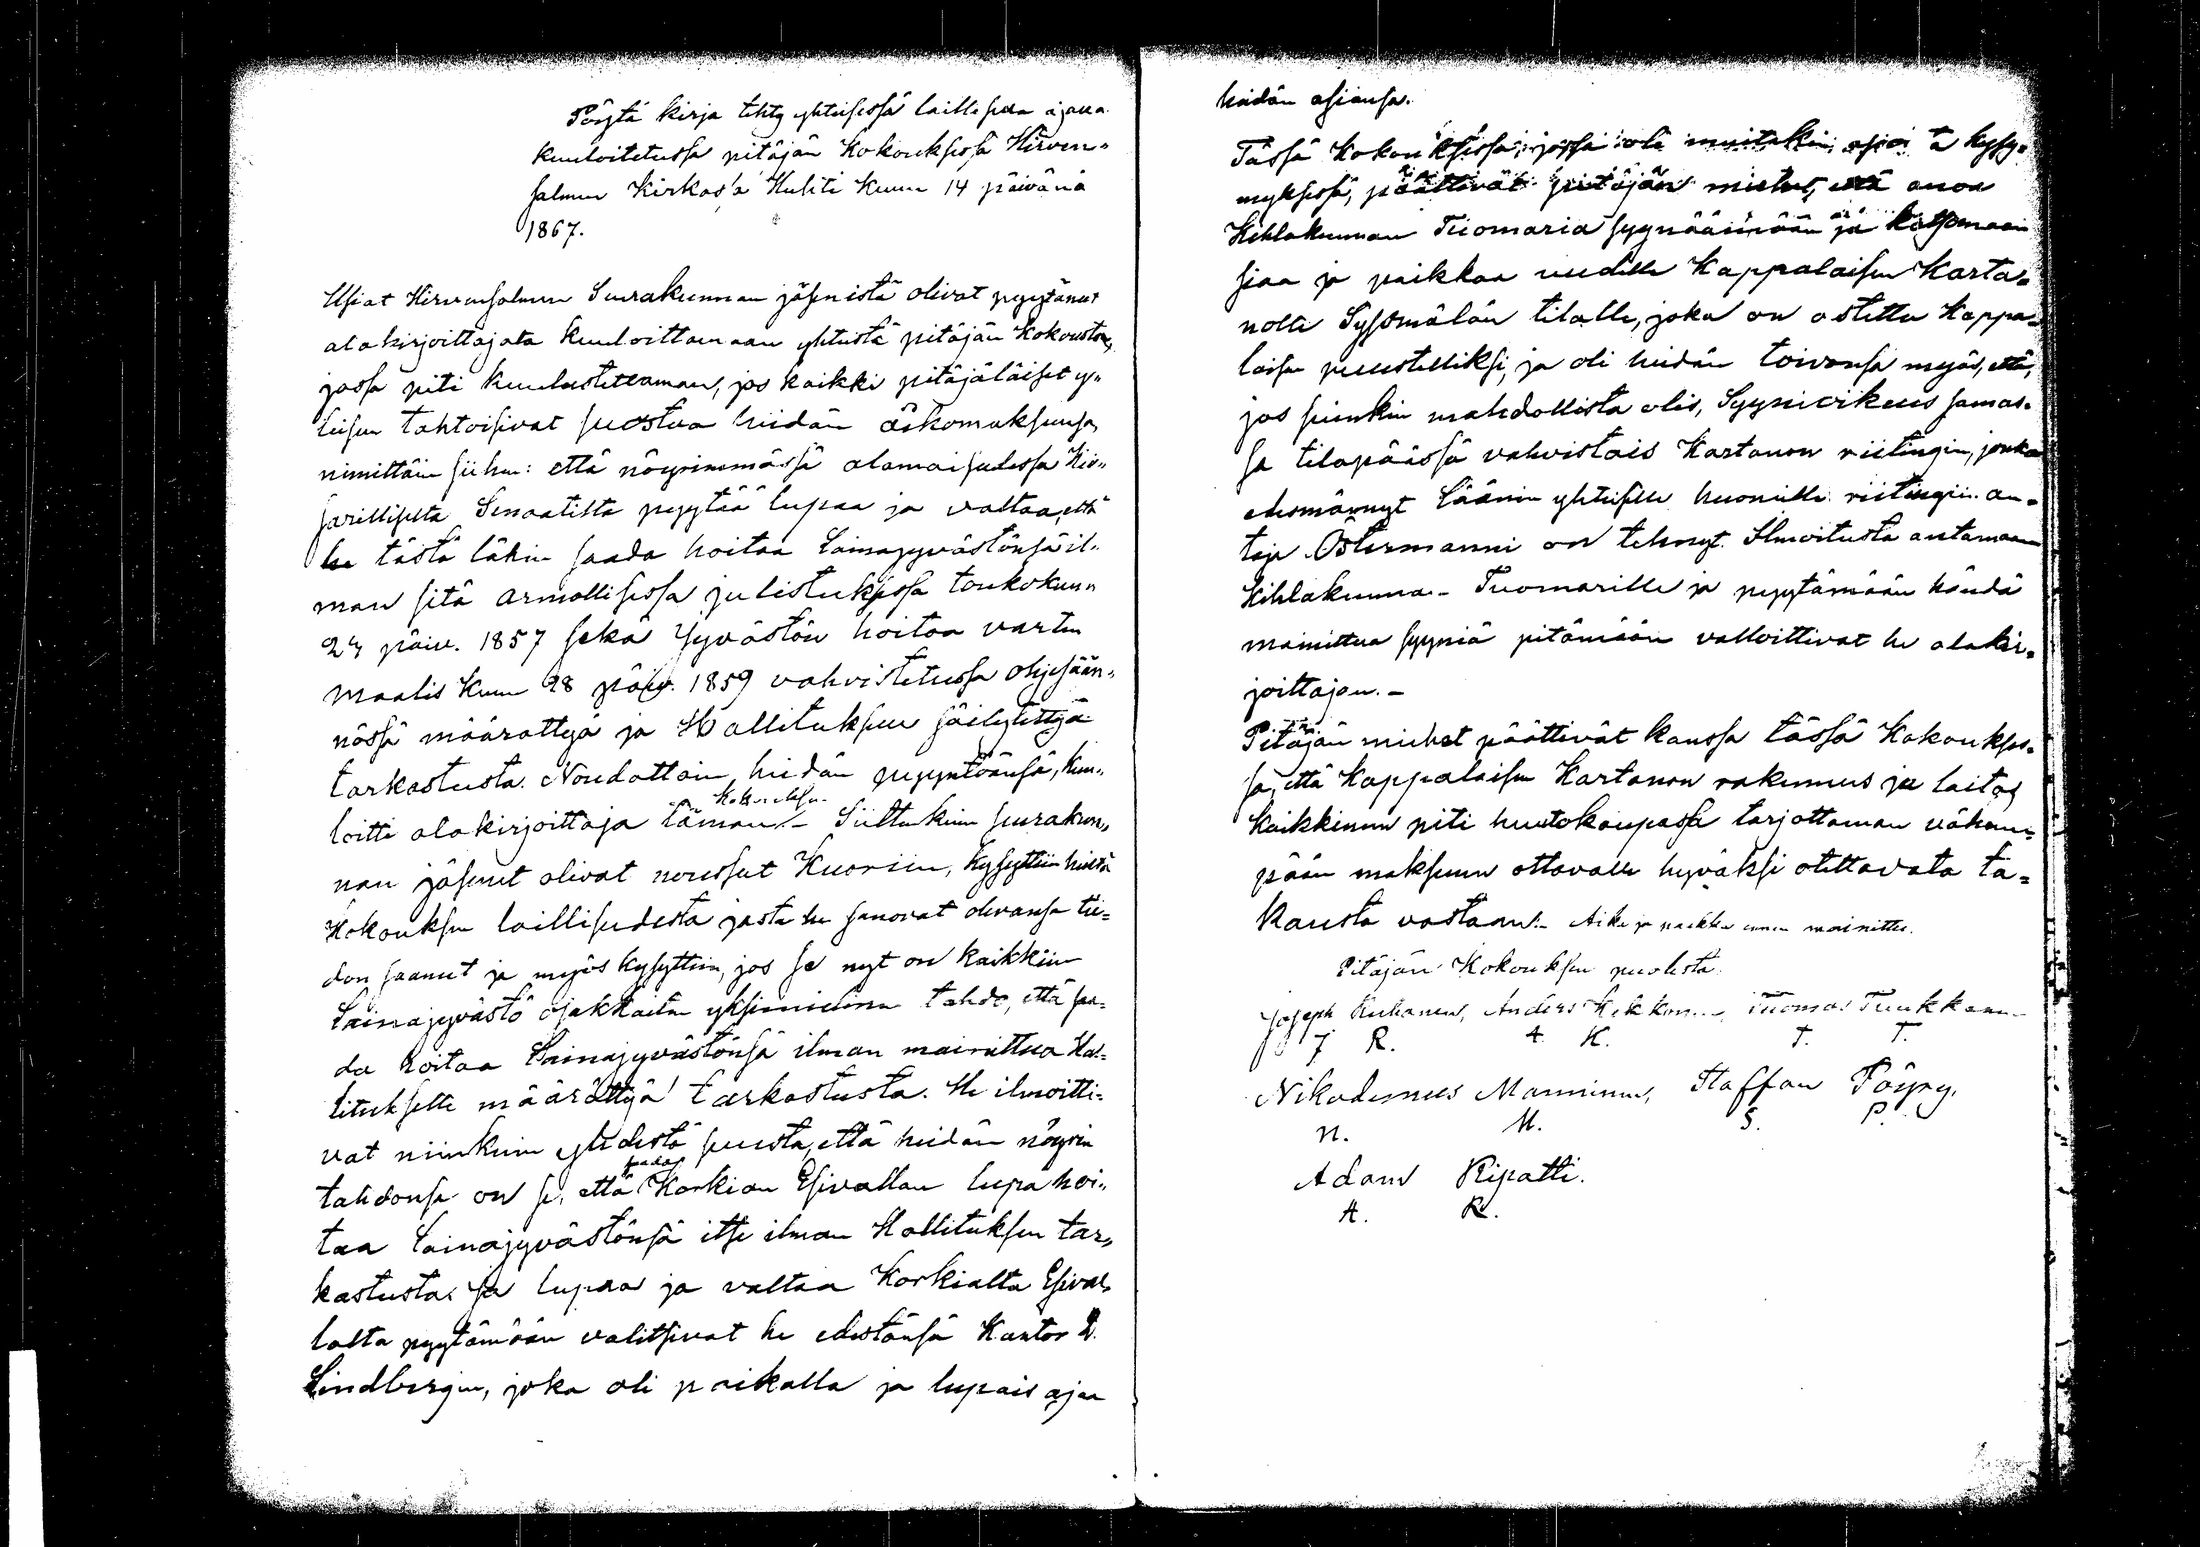 Pöytä kirja tehty yhteisessä laillisesa ajassa
kuuloitetussa pitäjän Kokouksessa Hirven-
salmen Kirkos'a Huhti Kuun 14 päivänä
1867.
Usiat Hirvensalmen Seurakunnan jäsenistä olivat pyytänet
alakirjoittajata kuuloittamaan yhteistä pitäjän Kokousta,
jossa piti kuulusteltaman, jos kaikki pitäjäläiset y-
leisen tahtoisivat suostua heidän äikomuksensa,
nimittäin siihen: että nöyrimmässä alamaisudessa Kei-
sarilliselta Senaatilta pyytää lupaa ja valtaa, että
he tästä läkin saada hoitaa Lainajyvästönsä il-
man sitä armollisessa julistuksessa toukokuun
24 päiv. 1857 sekä Jyvästön hoitoa varten
Maalis Kuun 28 päiv. 1859 vahvistetussa ohjesään-
nössä määrättyä ja Hallituksen säilytettyä
tarkastusta. Noudattain heidän pyyntöänsä, kuu-
loitti alakirjoittaja tämän Kokouksen. – Sittenkuin seurakun-
nan jäsenet olivat nousseet Kuoriin, kysyttiin heiltä
Kokouksen laillisudesta josta he sanovat olevansa tie-
don saanut ja myös kysyttiin, jos se nyt on kaikkiin
Lainajyvästö osakkaiten yksimielinen tahdo, että saa-
da hoitaa Lainajyvästönsä ilman mainittua Hal-
litukselle määrättyä tarkastusta. He ilmoitti-
vat niinkuin yhdestä suusta, että heidän nöyrin
tahdonsa on se, että saada Korkian Esivallan lupa hoi-
taa Lainajyvästönsä itse ilman Hallituksen tar-
kastusta. Ja lupaa ja valtaa Korkialta Esival-
lalta pyytämään valitsivat he edestänsä Kantor D.
Lindbergin, joka oli paikalla ja lupais ajaa
heidän asiansa.
Tässä Kokouksessa, jossa oli muitakin asioita kysy-
myksessä, päättivät pitäjän miehet, että anoa
Kihlakunnan Tuomaria syynäämään ja katsomaan
siaa ja paikkaa uudelle Kappalaisen Karta-
nolle Syssmälän tilalle, joka on ostettu Kappa-
laisen puustelliksi, ja oli heidän toivonsa myös, että,
jos suinkin mahdollista olis, Syynioikeus samas-
sa tilapäässä vahvistais Kartanon riitingin, jonka
edesmännyt Läänin yhteiselle huonelle riitingin an-
taja Östermanni on tehnyt. Ilmoitusta antamaan
Kihlakunna- Tuomarille ja pyytämään händä
mainittua syyniä pitämään valtoittivat he alakir-
joittajan. –
Pitäjän miehet päättivät kanssa tässä Kokoukses-
sa, että Kappalaisen Kartanon rakennus ja laitos
kaikkinen piti huutokaupassa tarjottaman vähem-
pään maksuun ottavalle hyväksi otettavata ta-
kausta vastaan. – Aika ja paikka ennen mainittu.
Pitäjän Kokouksen puolesta:
Joseph Kuhanen, Anders Kekkonen, Tuomas Tuukkanen
J R. A K. T. T.
Nikodemus Manninen, Staffan Pöyry,
N. M. S. P.
Adam Ripatti.
A. R.